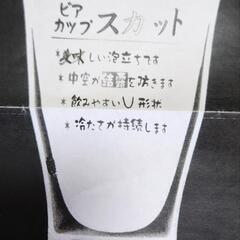 ビア
カップスカット
*美味しい泡立ちです
*中空が結露を防ぎます
*飲みやすいU形状
*冷たさが持続します